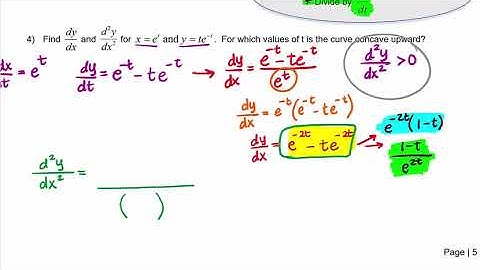 * Divide by dt
4) Find dy/dx and d²y/dx² for x = eᵗ and y = te⁻ᵗ. For which values of t is the curve concave upward?
dx/dt = eᵗ dy/dt = e⁻ᵗ - te⁻ᵗ → dy/dx = (e⁻ᵗ - te⁻ᵗ)/eᵗ d²y/dx² > 0
dy/dx = e⁻ᵗ(e⁻ᵗ - te⁻ᵗ)
dy/dx = e⁻²ᵗ - te⁻²ᵗ → e⁻²ᵗ(1-t)
→ (1-t)/e²ᵗ
d²y/dx² = ———
( )
Page | 5